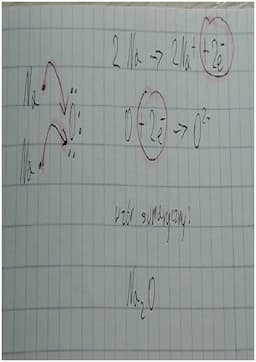 2 Na → 2Na⁺ + 2e⁻
Na
O
Na
O + 2e⁻ → O²⁻
wzór sumaryczny:
Na₂O